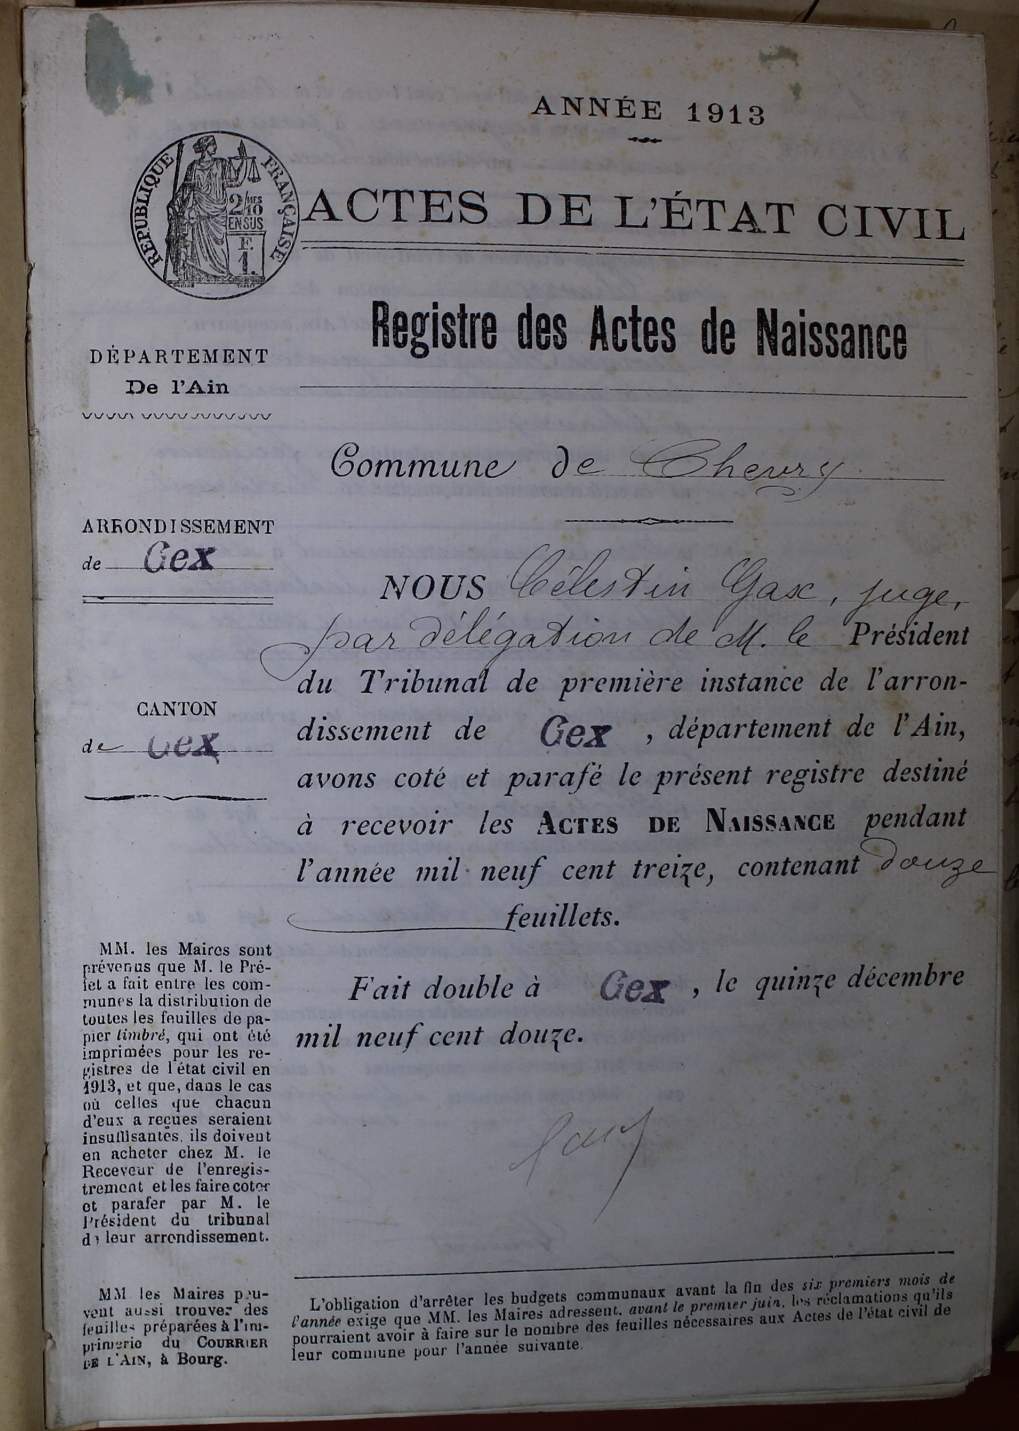 ANNÉE 1913
RÉPUBLIQUE FRANÇAISE
2/10 MES
EN SUS
F.
1.
ACTES DE L'ÉTAT CIVIL
Registre des Actes de Naissance
DÉPARTEMENT
De l'Ain
Commune de Chevry
ARRONDISSEMENT
de Gex
CANTON
de Gex
NOUS Célestin Gax, juge,
par délégation de M. le Président
du Tribunal de première instance de l'arron-
dissement de Gex, département de l'Ain,
avons coté et parafé le présent registre destiné
à recevoir les ACTES DE NAISSANCE pendant
l'année mil neuf cent treize, contenant douze
feuillets.
Fait double à Gex, le quinze décembre
mil neuf cent douze.
MM. les Maires sont
prévenus que M. le Pré-
fet a fait entre les com-
munes la distribution de
toutes les feuilles de pa-
pier timbré, qui ont été
imprimées pour les re-
gistres de l'état civil en
1913, et que, dans le cas
où celles que chacun
d'eux a reçues seraient
insuffisantes, ils doivent
en acheter chez M. le
Receveur de l'enregis-
trement et les faire coter
et parafer par M. le
Président du tribunal
de leur arrondissement.
MM les Maires peu-
vent aussi trouver des
feuilles préparées à l'im-
primerie du COURRIER
DE L'AIN, à Bourg.
L'obligation d'arrêter les budgets communaux avant la fin des six premiers mois de
l'année exige que MM. les Maires adressent, avant le premier juin, les réclamations qu'ils
pourraient avoir à faire sur le nombre des feuilles nécessaires aux Actes de l'état civil de
leur commune pour l'année suivante.